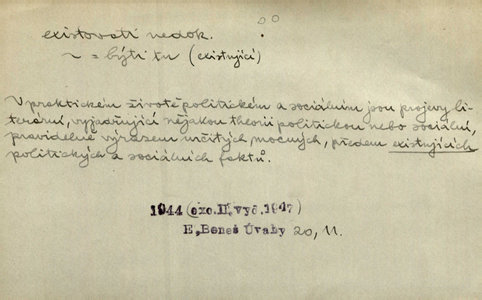 existovati nedok.
~ = býti tu (existující)
V praktickém životě politickém a sociálním jsou projevy li-
terární, vyjadřující nějakou theorii politickou nebo sociální,
pravidelně výrazem určitých mocných, předem existujících
politických a sociálních faktů.
1944 (exc.II.vyč.1947)
E.Beneš Úvahy 20, 11.